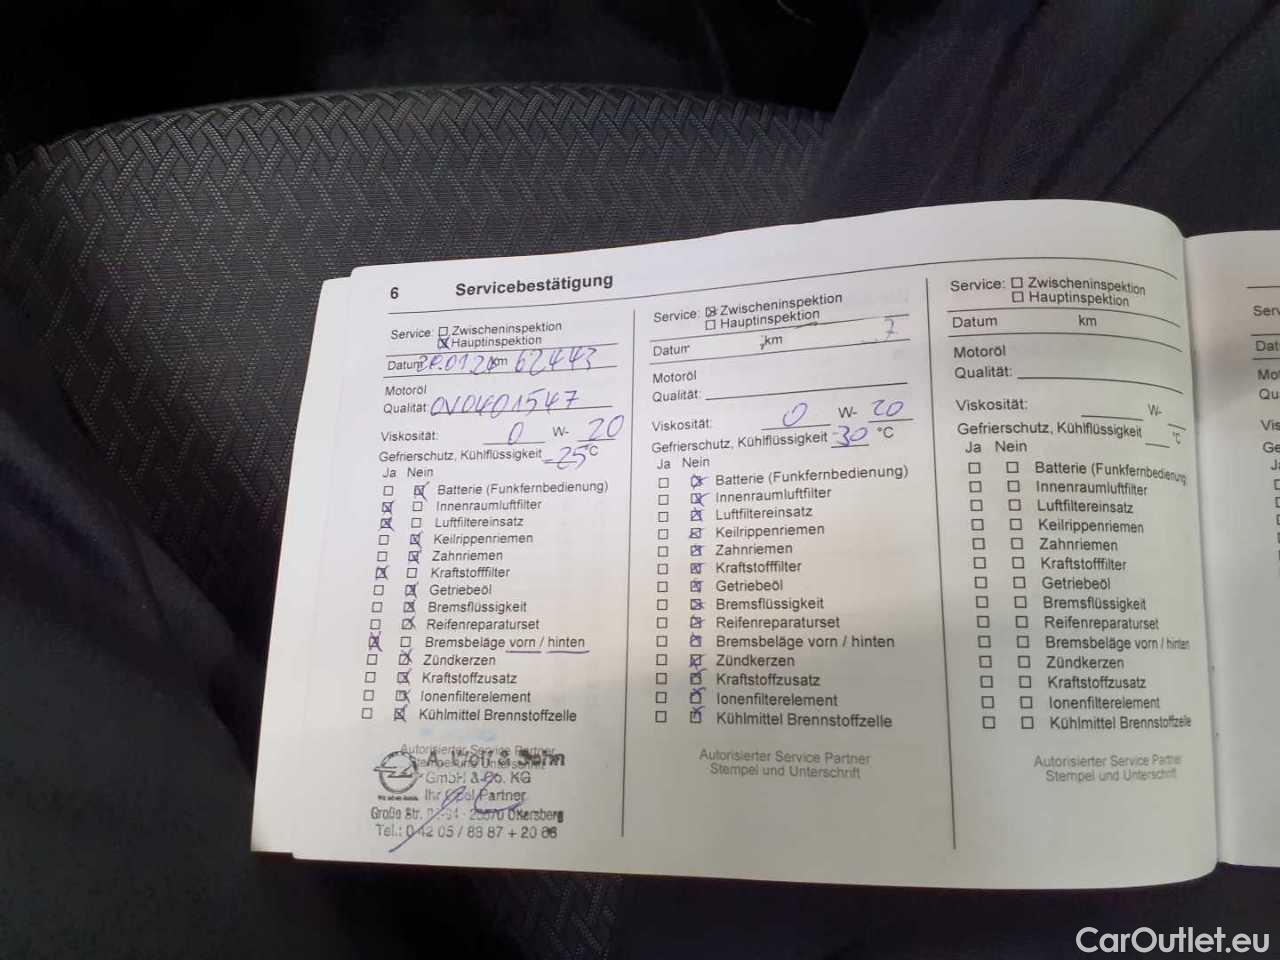 6 Servicebestätigung
Service: Zwischeninspektion
Hauptinspektion
Datum km 62443
Motoröl
Qualität: OV0401547
Viskosität: 0 W- 20
Gefrierschutz, Kühlflüssigkeit -25 °C
Ja Nein
Batterie (Funkfernbedienung)
Innenraumluftfilter
Luftfiltereinsatz
Keilrippenriemen
Zahnriemen
Kraftstofffilter
Getriebeöl
Bremsflüssigkeit
Reifenreparaturset
Bremsbeläge vorn / hinten
Zündkerzen
Kraftstoffzusatz
Ionenfilterelement
Kühlmittel Brennstoffzelle
Autorisierter Service Partner
Stempel und Unterschrift
& Sohn
GmbH & Co. KG
Ihr Opel Partner
Große Str. Ottersberg
Tel.: 0 42 05 / 88 87 + 20 88
Service: Zwischeninspektion
Hauptinspektion
Datum km
Motoröl
Qualität:
Viskosität: 0 W- 20
Gefrierschutz, Kühlflüssigkeit -30 °C
Ja Nein
Batterie (Funkfernbedienung)
Innenraumluftfilter
Luftfiltereinsatz
Keilrippenriemen
Zahnriemen
Kraftstofffilter
Getriebeöl
Bremsflüssigkeit
Reifenreparaturset
Bremsbeläge vorn / hinten
Zündkerzen
Kraftstoffzusatz
Ionenfilterelement
Kühlmittel Brennstoffzelle
Autorisierter Service Partner
Stempel und Unterschrift
Service: Zwischeninspektion
Hauptinspektion
Datum km
Motoröl
Qualität:
Viskosität: W-
Gefrierschutz, Kühlflüssigkeit °C
Ja Nein
Batterie (Funkfernbedienung)
Innenraumluftfilter
Luftfiltereinsatz
Keilrippenriemen
Zahnriemen
Kraftstofffilter
Getriebeöl
Bremsflüssigkeit
Reifenreparaturset
Bremsbeläge vorn / hinten
Zündkerzen
Kraftstoffzusatz
Ionenfilterelement
Kühlmittel Brennstoffzelle
Autorisierter Service Partner
Stempel und Unterschrift
CarOutlet.eu